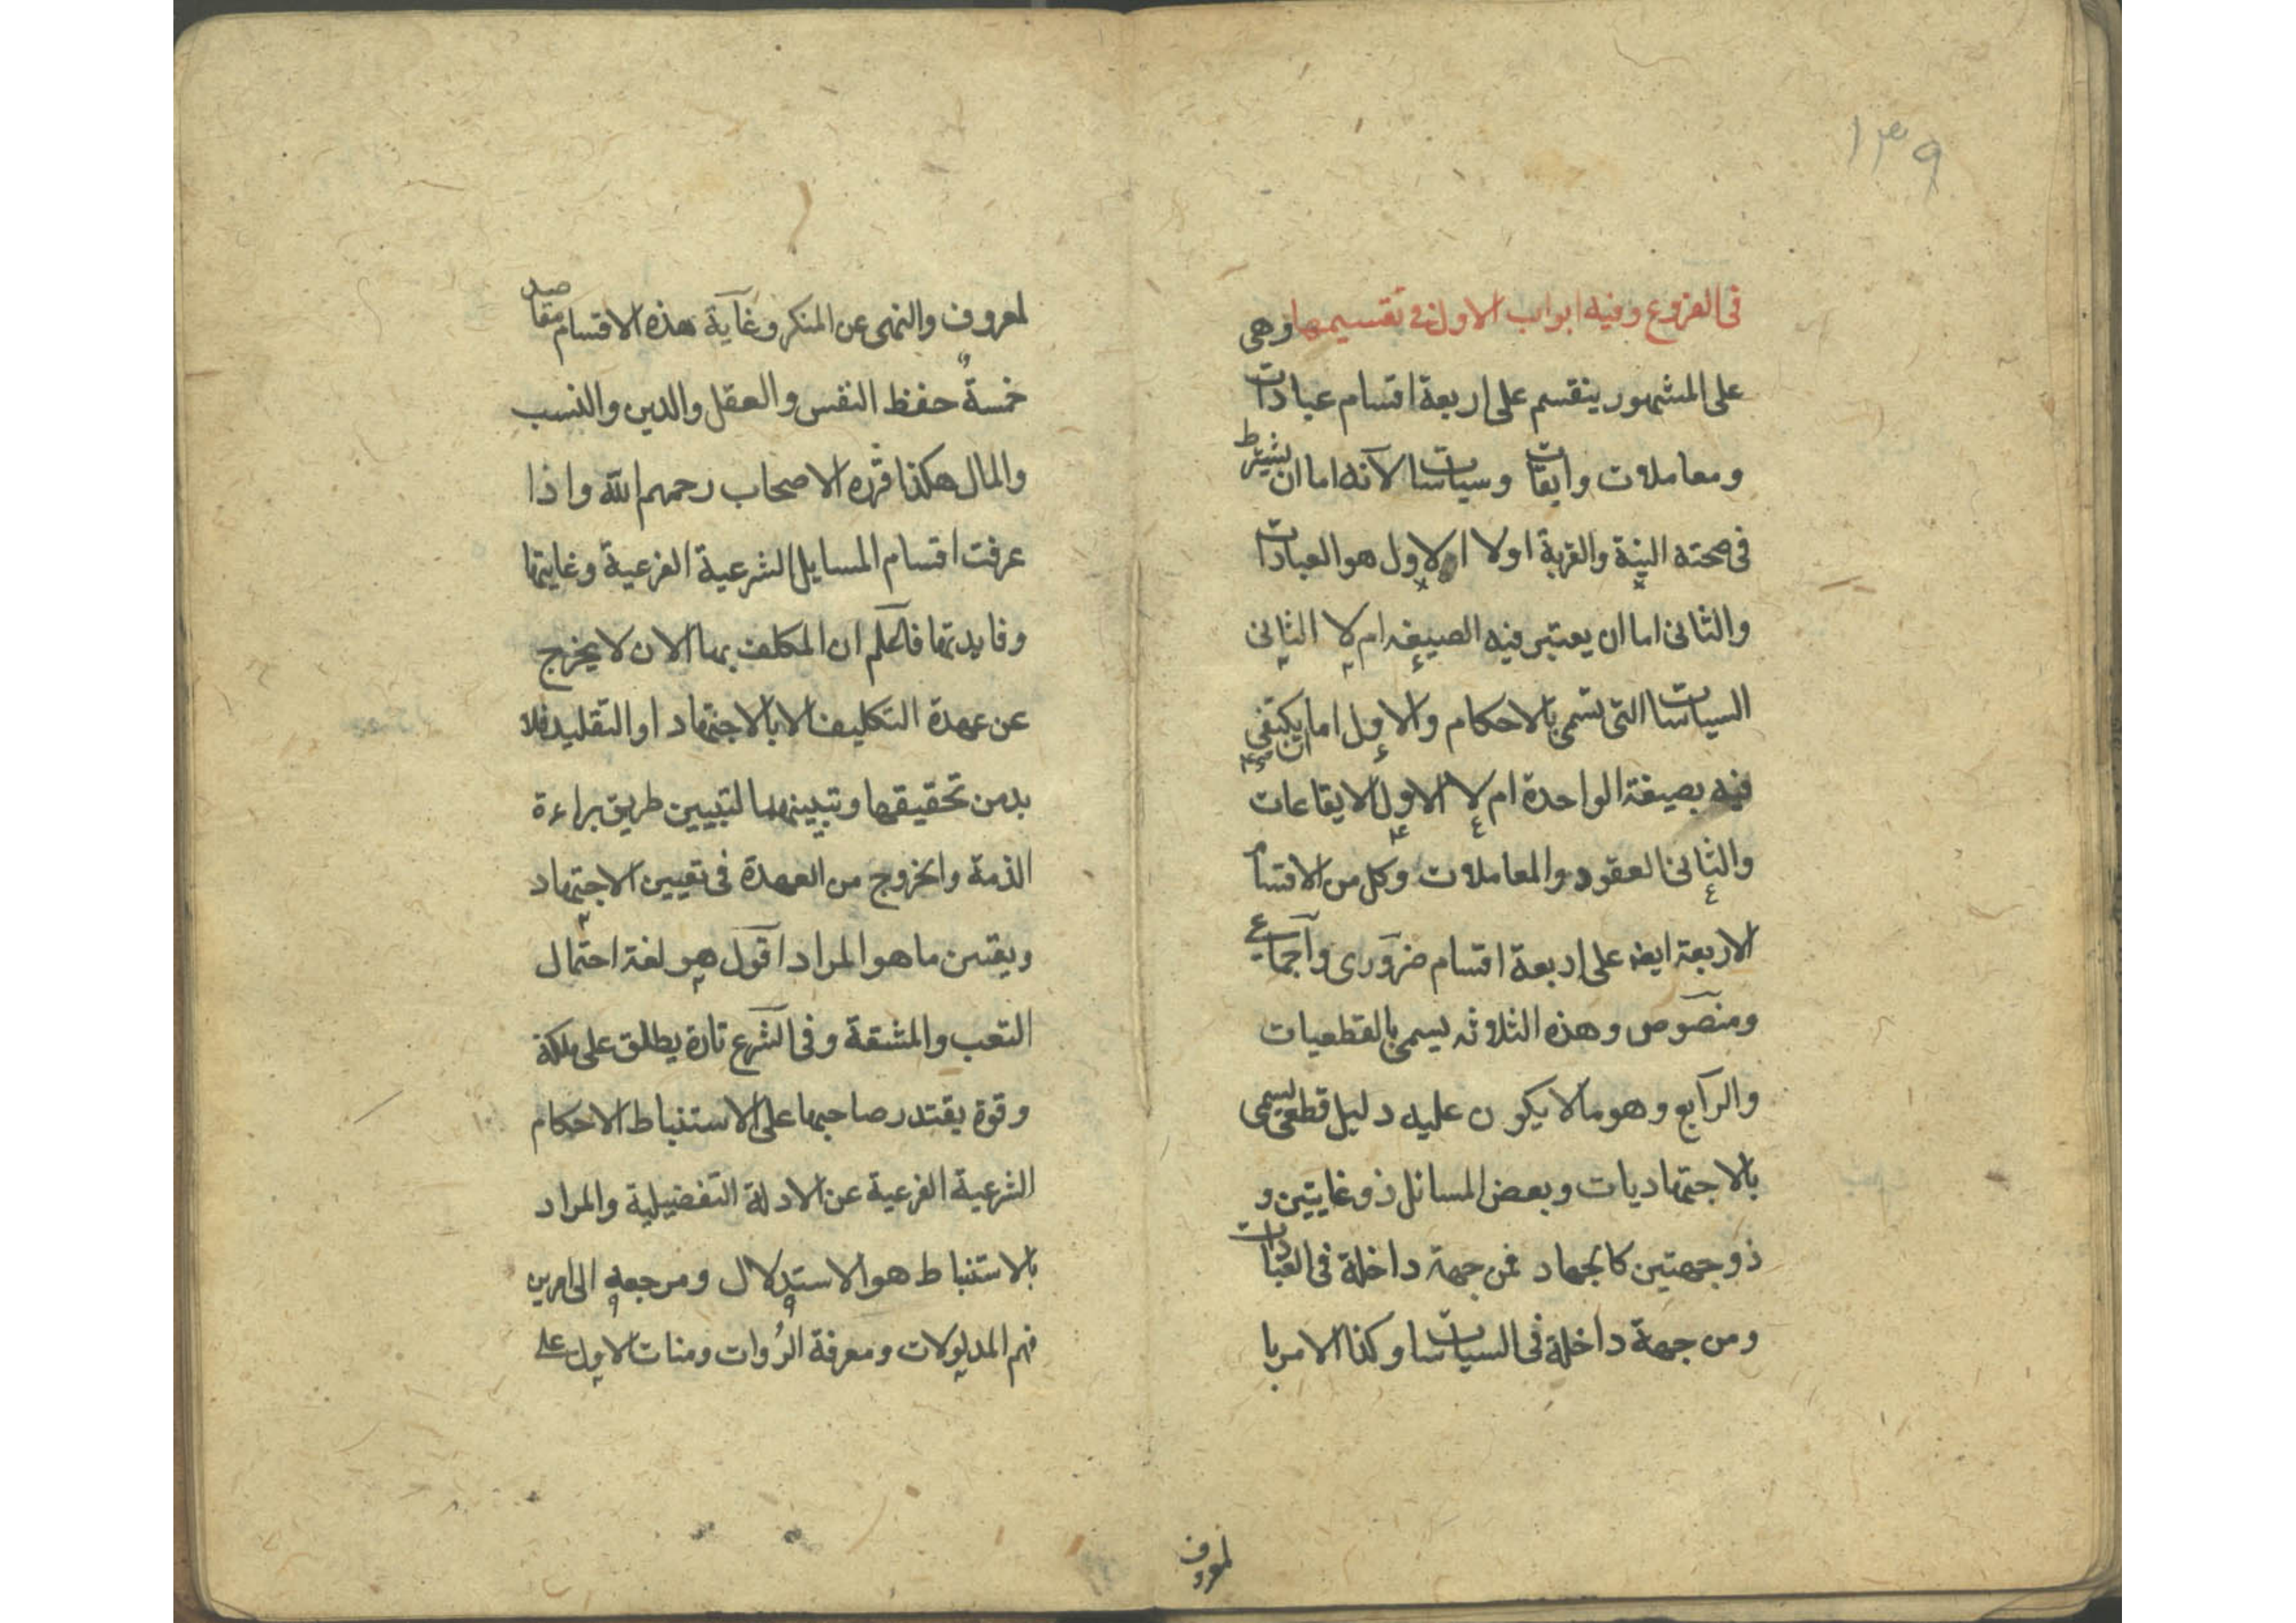 ١٣٩
فى الفروع وفيه ابواب الاول فى تقسيمها وهى
على المشهور ينقسم على اربعة اقسام عبادات
ومعاملات وايقات وسياسات لآنه اما ان يشترط
فى صحته النية والقربة اولا الاول هو العبادات
والثانى اما ان يعتبر فيه الصيغه ام لا الثانى
السياسات التى تسمى بالاحكام والاول اما ان يكتفى
فيه بصيغة الواحدة ام لا الاول الايقاعات
والثانى العقود والمعاملات وكل من الاقسام
الاربعة ايضا على اربعة اقسام ضرورى واجماعى
ومنصوص وهذه الثلاثه يسمى بالقطعيات
والرابع وهو ما لا يكون عليه دليل قطعى يسمى
بالاجتهاديات وبعض المسائل ذو غايتين و
ذو جهتين كالجهاد فمن جهة داخلة فى العبادات
ومن جهة داخلة فى السياسات وكذا الامر با
لمعروف
لمعروف والنهى عن المنكر وغاية هذه الاقسام مقاصد
خمسة حفظ النفس والعقل والدين والنسب
والمال هكذا قرره الاصحاب رحمهم الله واذا
عرفت اقسام المسايل الشرعية الفرعية وغايتها
وفايدتها فاعلم ان المكلف بها الان لا يخرج
عن عهدة التكليف الا بالاجتهاد او التقليد فلا
بد من تحقيقها وتبيينها لتبيين طريق براءة
الذمة والخروج من العهدة فى تعيين الاجتهاد
ويقين ما هو المراد اقول هو لغة احتمال
التعب والمشقة وفى الشرع تارة يطلق على ملكة
وقوة يقتدر صاحبها على الاستنباط الاحكام
الشرعية الفرعية عن الادلة التفضيلية والمراد
بالاستنباط هو الاستدلال ومرجعه الى امرين
فهم المدلولات ومعرفة الرُوات ومنات الاول على